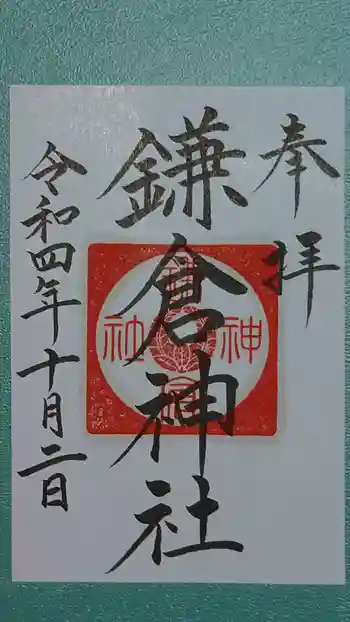 奉拝
鎌倉神社
令和四年十月二日
鎌
倉
神
社